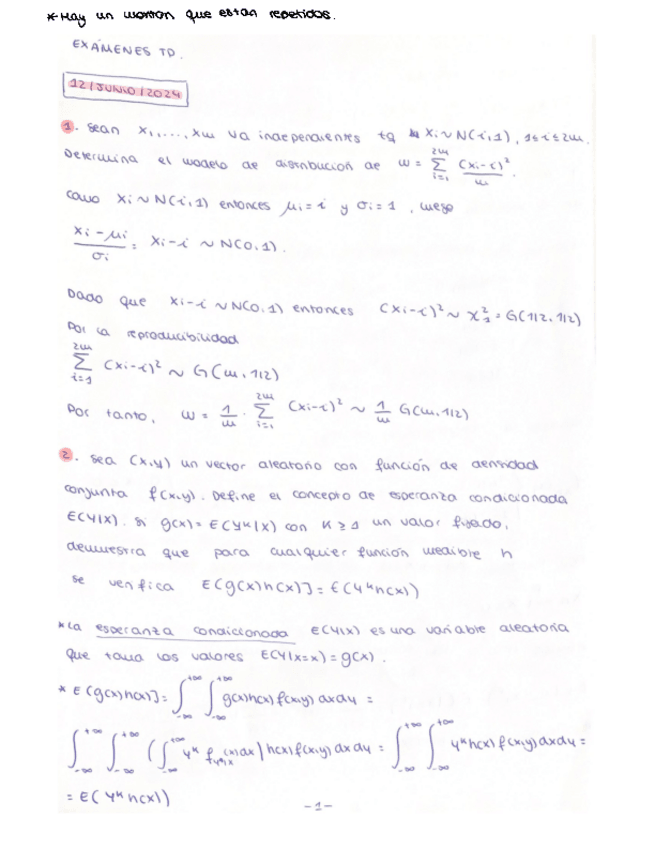 *Hay un montón que están repetidos.
EXÁMENES TD.
12/JUNIO/2024
1. Sean X₁,...,Xₘ va independientes tq Xi ~ N(i,1), 1≤i≤2m.
Determina el modelo de distribución de W = ∑_{i=1}^{2m} (Xi-i)²/m.
Como Xi ~ N(i,1) entonces μi = i y σi = 1, luego
(Xi-μi)/σi = Xi-i ~ N(0,1).
Dado que Xi-i ~ N(0,1) entonces (Xi-i)² ~ χ²₁ = G(1/2,1/2)
Por la reproducibilidad
∑_{i=1}^{2m} (Xi-i)² ~ G(m,1/2)
Por tanto, W = 1/m · ∑_{i=1}^{2m} (Xi-i)² ~ 1/m G(m,1/2)
2. Sea (X,Y) un vector aleatorio con función de densidad
conjunta f(x,y). Define el concepto de esperanza condicionada
E(Y|X). Si g(x) = E(Yᵏ|X) con K ≥ 1 un valor fijado,
demuestra que para cualquier función medible h
se verifica E[g(x)h(x)] = E(Yᵏh(x))
*La esperanza condicionada E(Y|X) es una variable aleatoria
que toma los valores E(Y|X=x) = g(x).
* E[g(x)h(x)] = ∫_{-∞}^{+∞} ∫_{-∞}^{+∞} g(x)h(x) f(x,y) dx dy =
∫_{-∞}^{+∞} ∫_{-∞}^{+∞} (∫_{-∞}^{+∞} yᵏ f_{Y|X}(x) dx) h(x) f(x,y) dx dy = ∫_{-∞}^{+∞} ∫_{-∞}^{+∞} yᵏ h(x) f(x,y) dx dy =
= E(Yᵏ h(x))
-1-